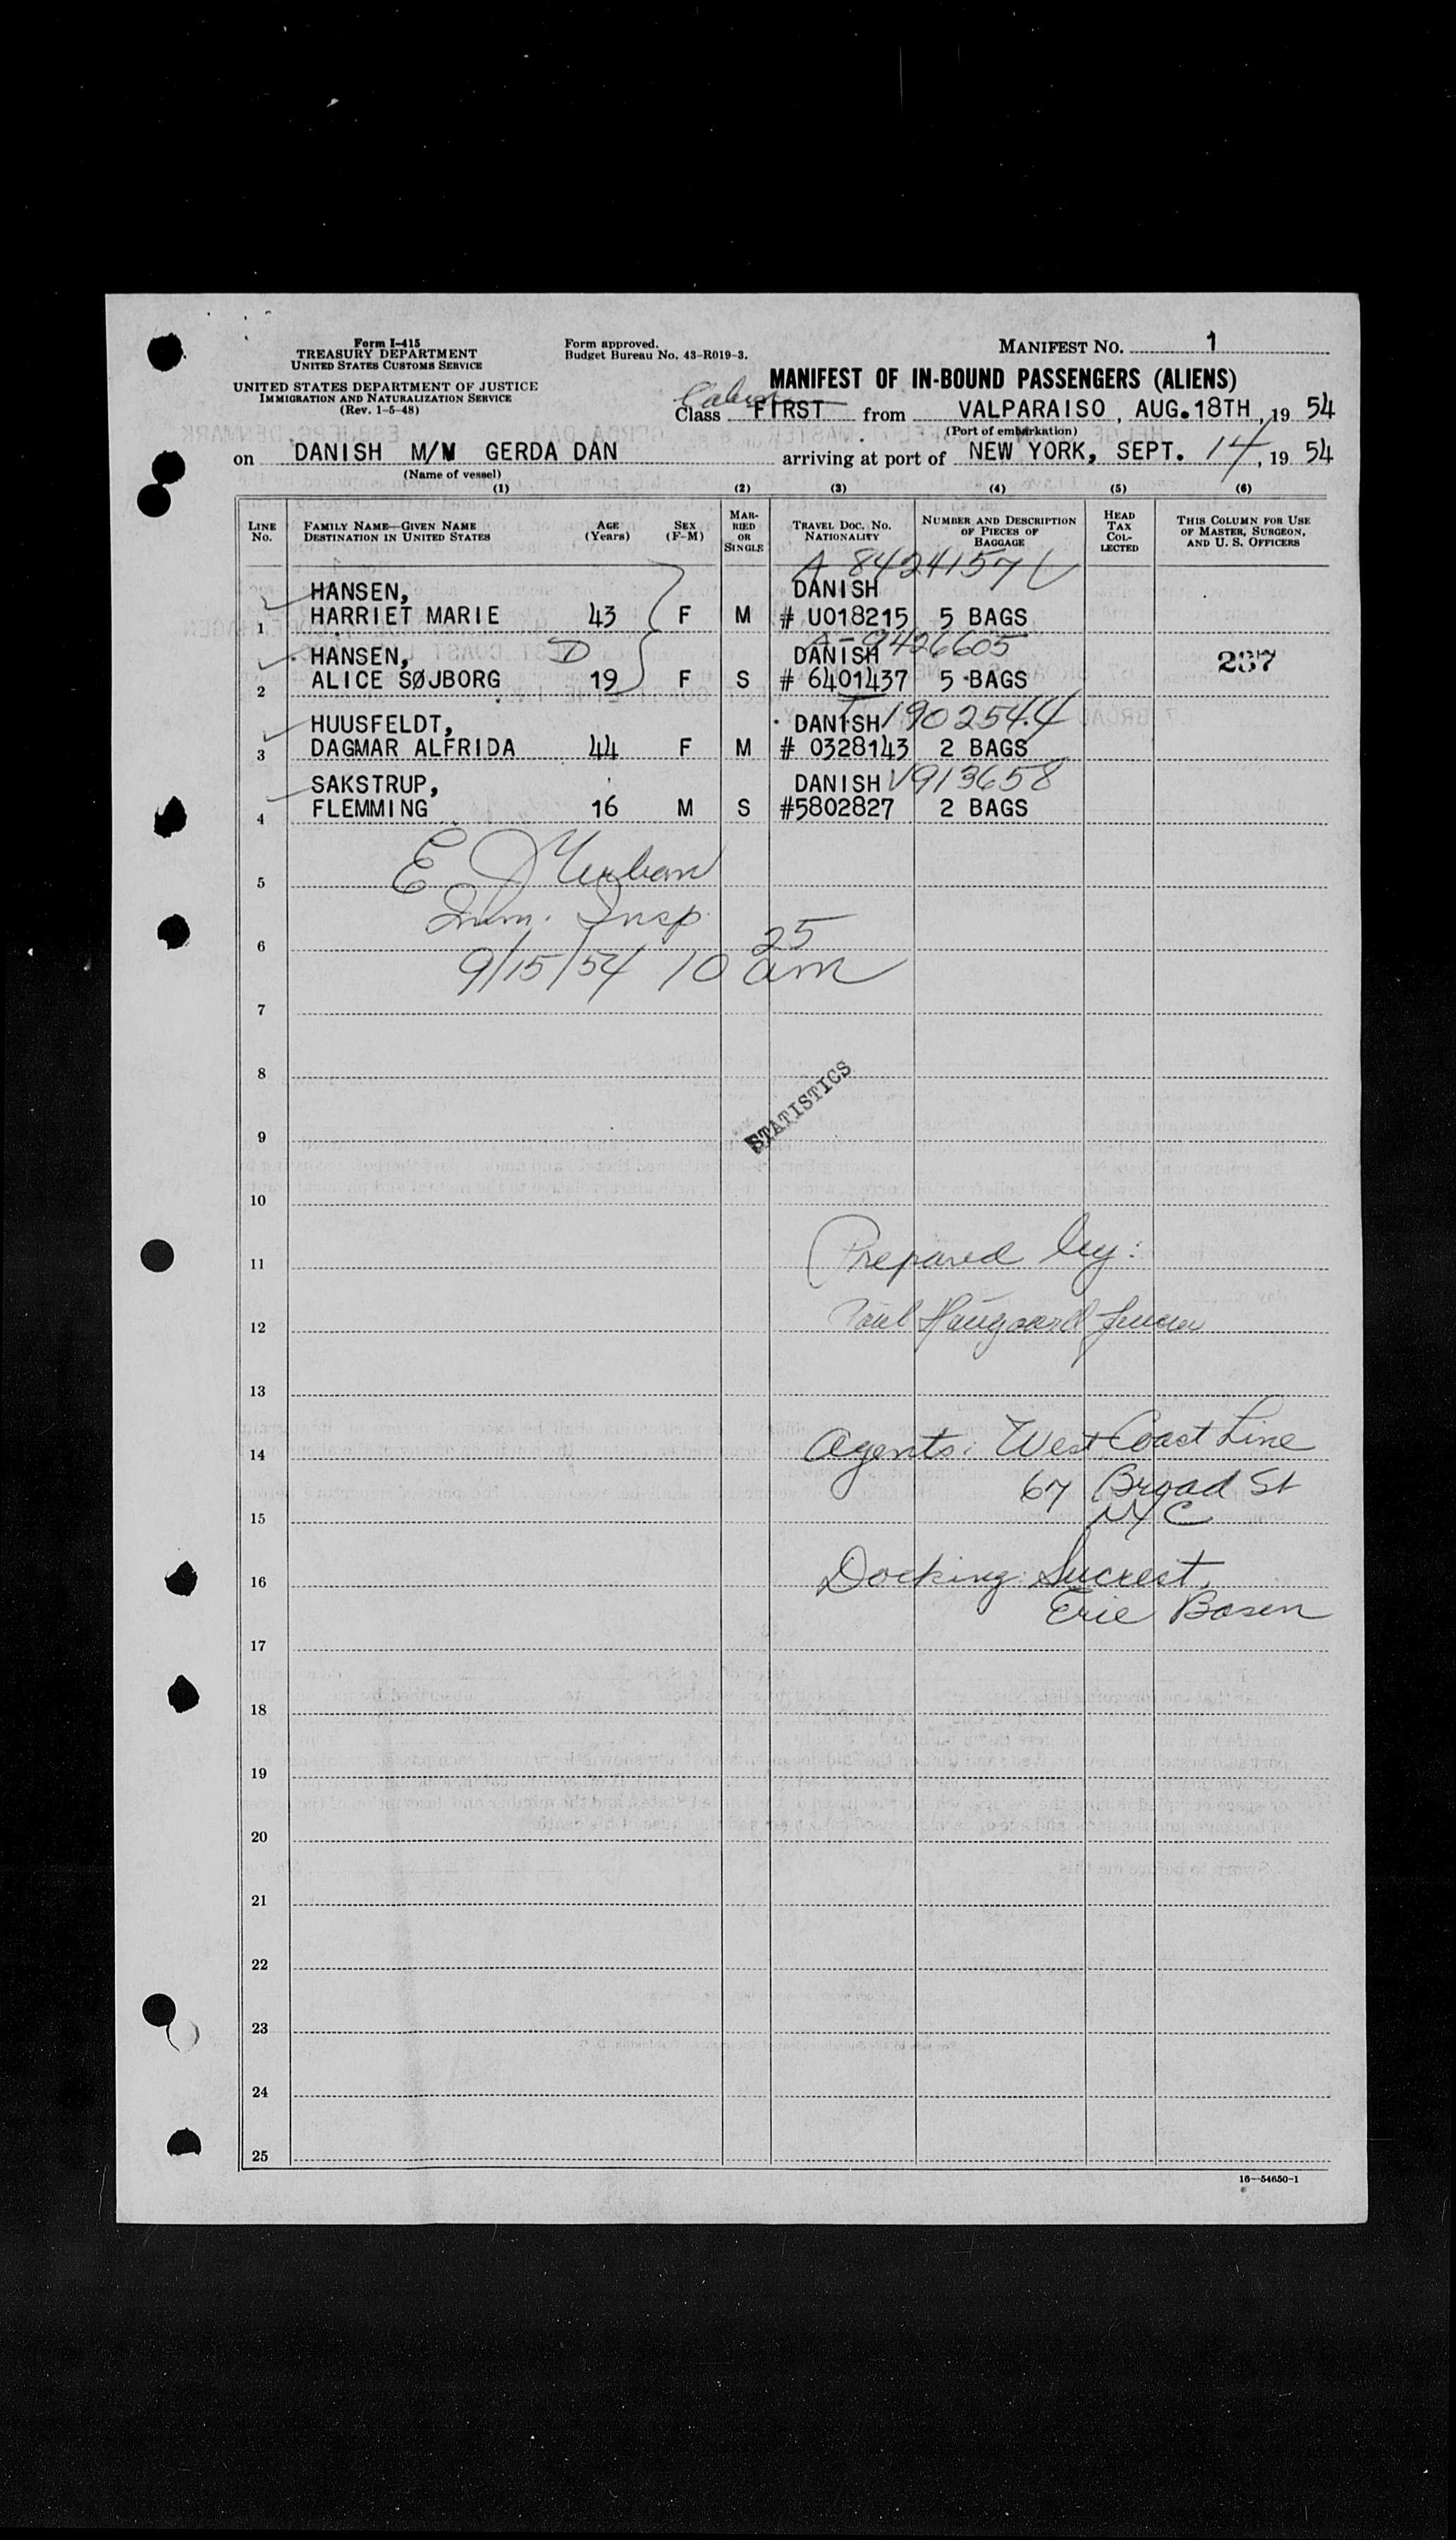 Form I-415
TREASURY DEPARTMENT
UNITED STATES CUSTOMS SERVICE
UNITED STATES DEPARTMENT OF JUSTICE
IMMIGRATION AND NATURALIZATION SERVICE
(Rev. 1-5-48)
Form approved.
Budget Bureau No. 43-R019-3.
MANIFEST NO. 1
MANIFEST OF IN-BOUND PASSENGERS (ALIENS)
Cabin
Class FIRST from VALPARAISO, AUG. 18TH, 19 54
(Port of embarkation)
on DANISH M/M GERDA DAN arriving at port of NEW YORK, SEPT. 14, 19 54
(Name of vessel)
(1) (2) (3) (4) (5) (6)
LINE NO. FAMILY NAME—GIVEN NAME DESTINATION IN UNITED STATES AGE (Years) SEX (F-M) MARRIED OR SINGLE TRAVEL DOC. NO. NATIONALITY NUMBER AND DESCRIPTION OF PIECES OF BAGGAGE HEAD TAX COLLECTED THIS COLUMN FOR USE OF MASTER, SURGEON, AND U. S. OFFICERS
A 8424157
HANSEN, DANISH
1 HARRIET MARIE 43 F M # U018215 5 BAGS
A-9426605
HANSEN, D DANISH 237
2 ALICE SØJBORG 19 F S # 6401437 5 BAGS
HUUSFELDT, DANISH 1902544
3 DAGMAR ALFRIDA 44 F M # 0328143 2 BAGS
SAKSTRUP, DANISH V913658
4 FLEMMING 16 M S #5802827 2 BAGS
5
Imm. Insp.
6
9/15/54 10 25 am
7
8
STATISTICS
9
10
11 Prepared by:
12 Paul Haugaard
13
14 Agents: West Coast Line
67 Broad St
15 NYC
16 Docking: Sucrest,
Erie Basin
17
18
19
20
21
22
23
24
25
16—54650-1